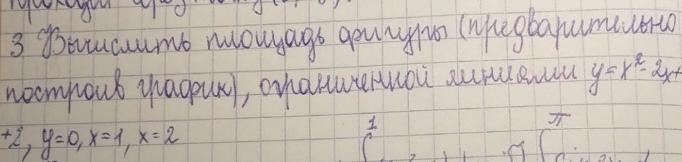 3 Вычислить площадь фигуры (предварительно
построив график), ограниченной линиями y=x²-2x+
+2, y=0, x=1, x=2